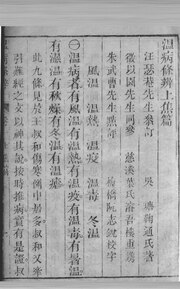 溫病條辨上焦篇
汪瑟菴先生參訂 吳瑭鞠通氏著
徵以園先生同參 慈溪葉氏
朱武曹先生點評 校字
風溫 溫熱 溫疫 溫毒 冬溫
㊀溫病者有風溫有溫熱有溫疫有溫毒有暑溫
有濕溫有秋燥有冬溫有溫瘧
此九條見於王叔和傷寒例中居多叔和又牽
引難經之文以神其說按時推病實有是證叔